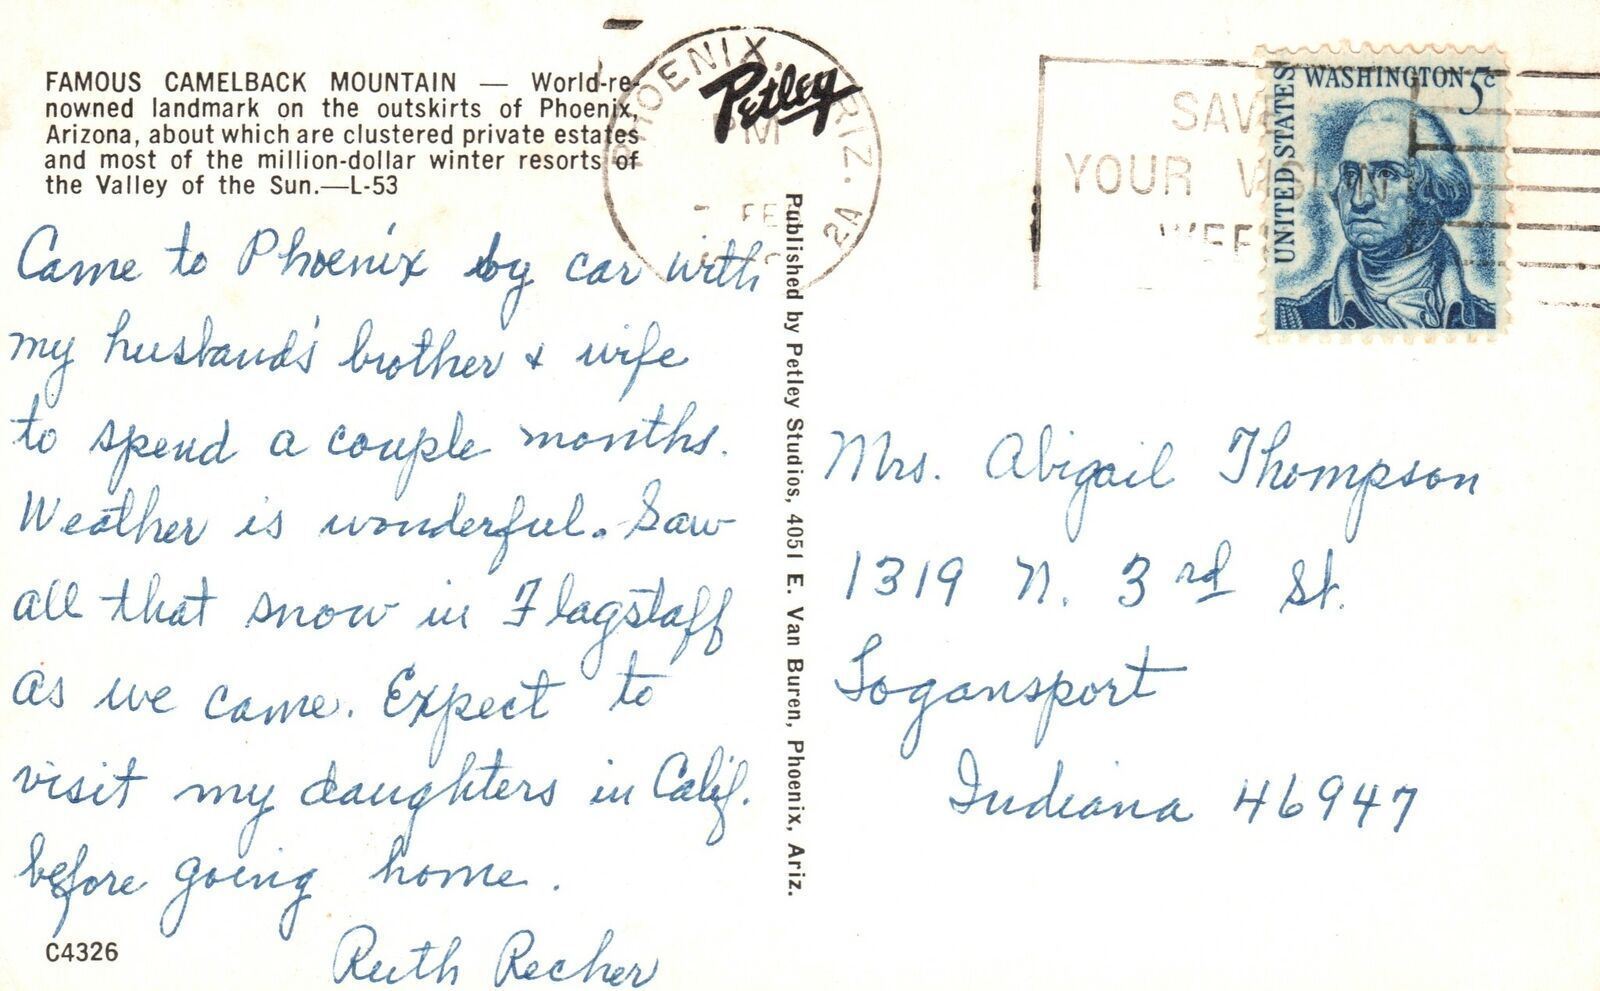 FAMOUS CAMELBACK MOUNTAIN — World-re-
nowned landmark on the outskirts of Phoenix,
Arizona, about which are clustered private estates
and most of the million-dollar winter resorts of
the Valley of the Sun.—L-53
Came to Phoenix by car with
my husband's brother & wife
to spend a couple months.
Weather is wonderful. Saw
all that snow in Flagstaff
as we came. Expect to
visit my daughters in Calif.
before going home.
Ruth Recher
C4326
Petley
PHOENIX, ARIZ.
PM
FE
Published by Petley Studios, 4051 E. Van Buren, Phoenix, Ariz.
SAVE
YOUR VISION
WEEK
UNITED STATES
WASHINGTON 5c
Mrs. Abigail Thompson
1319 N. 3rd St.
Logansport
Indiana 46947